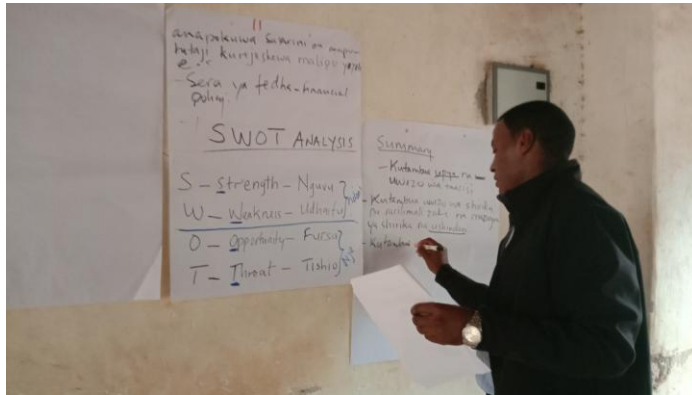 anapokuwa safarini
hataji kurejeshewa malipo yake
- Sera ya fedha - financial
policy
SWOT ANALYSIS
S - Strength - Nguvu
W - Weakness - Udhaifu
O - Opportunity - Fursa
T - Threat - Tishio
Summary
- Kutambua na
uwezo wa
- Kutambua uwezo wa shirika
na rasilimali zake na
ya shirika na ushindani
- Kutambua